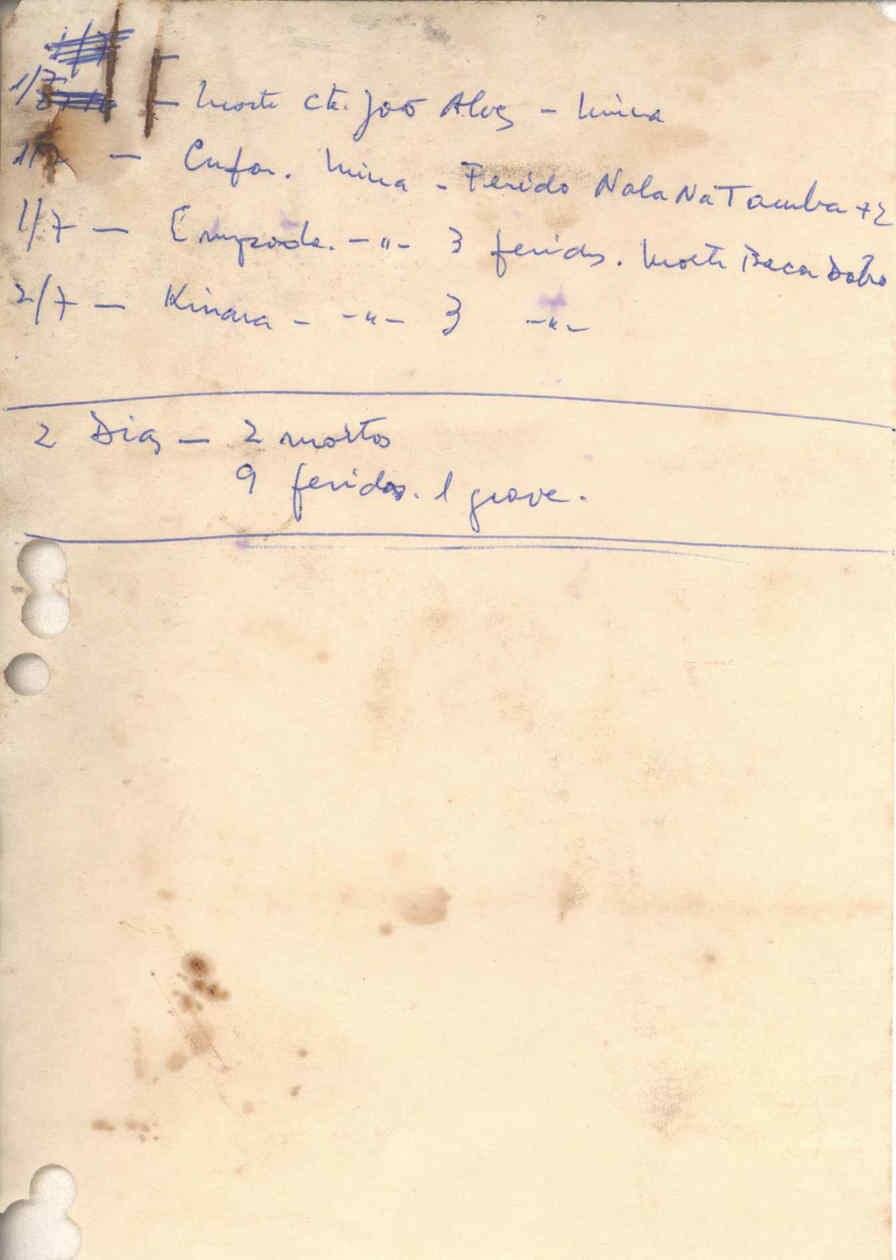 1/7 — Morte Cte. João Alves - Mina
1/7 — Cufar. Mina - Ferido Nala Na Tamba + 2
1/7 — Empada. -"- 3 feridos. Morte
2/7 — Kinara - -"- 3 -"-
2 Dias — 2 mortos
9 feridos. 1 grave.